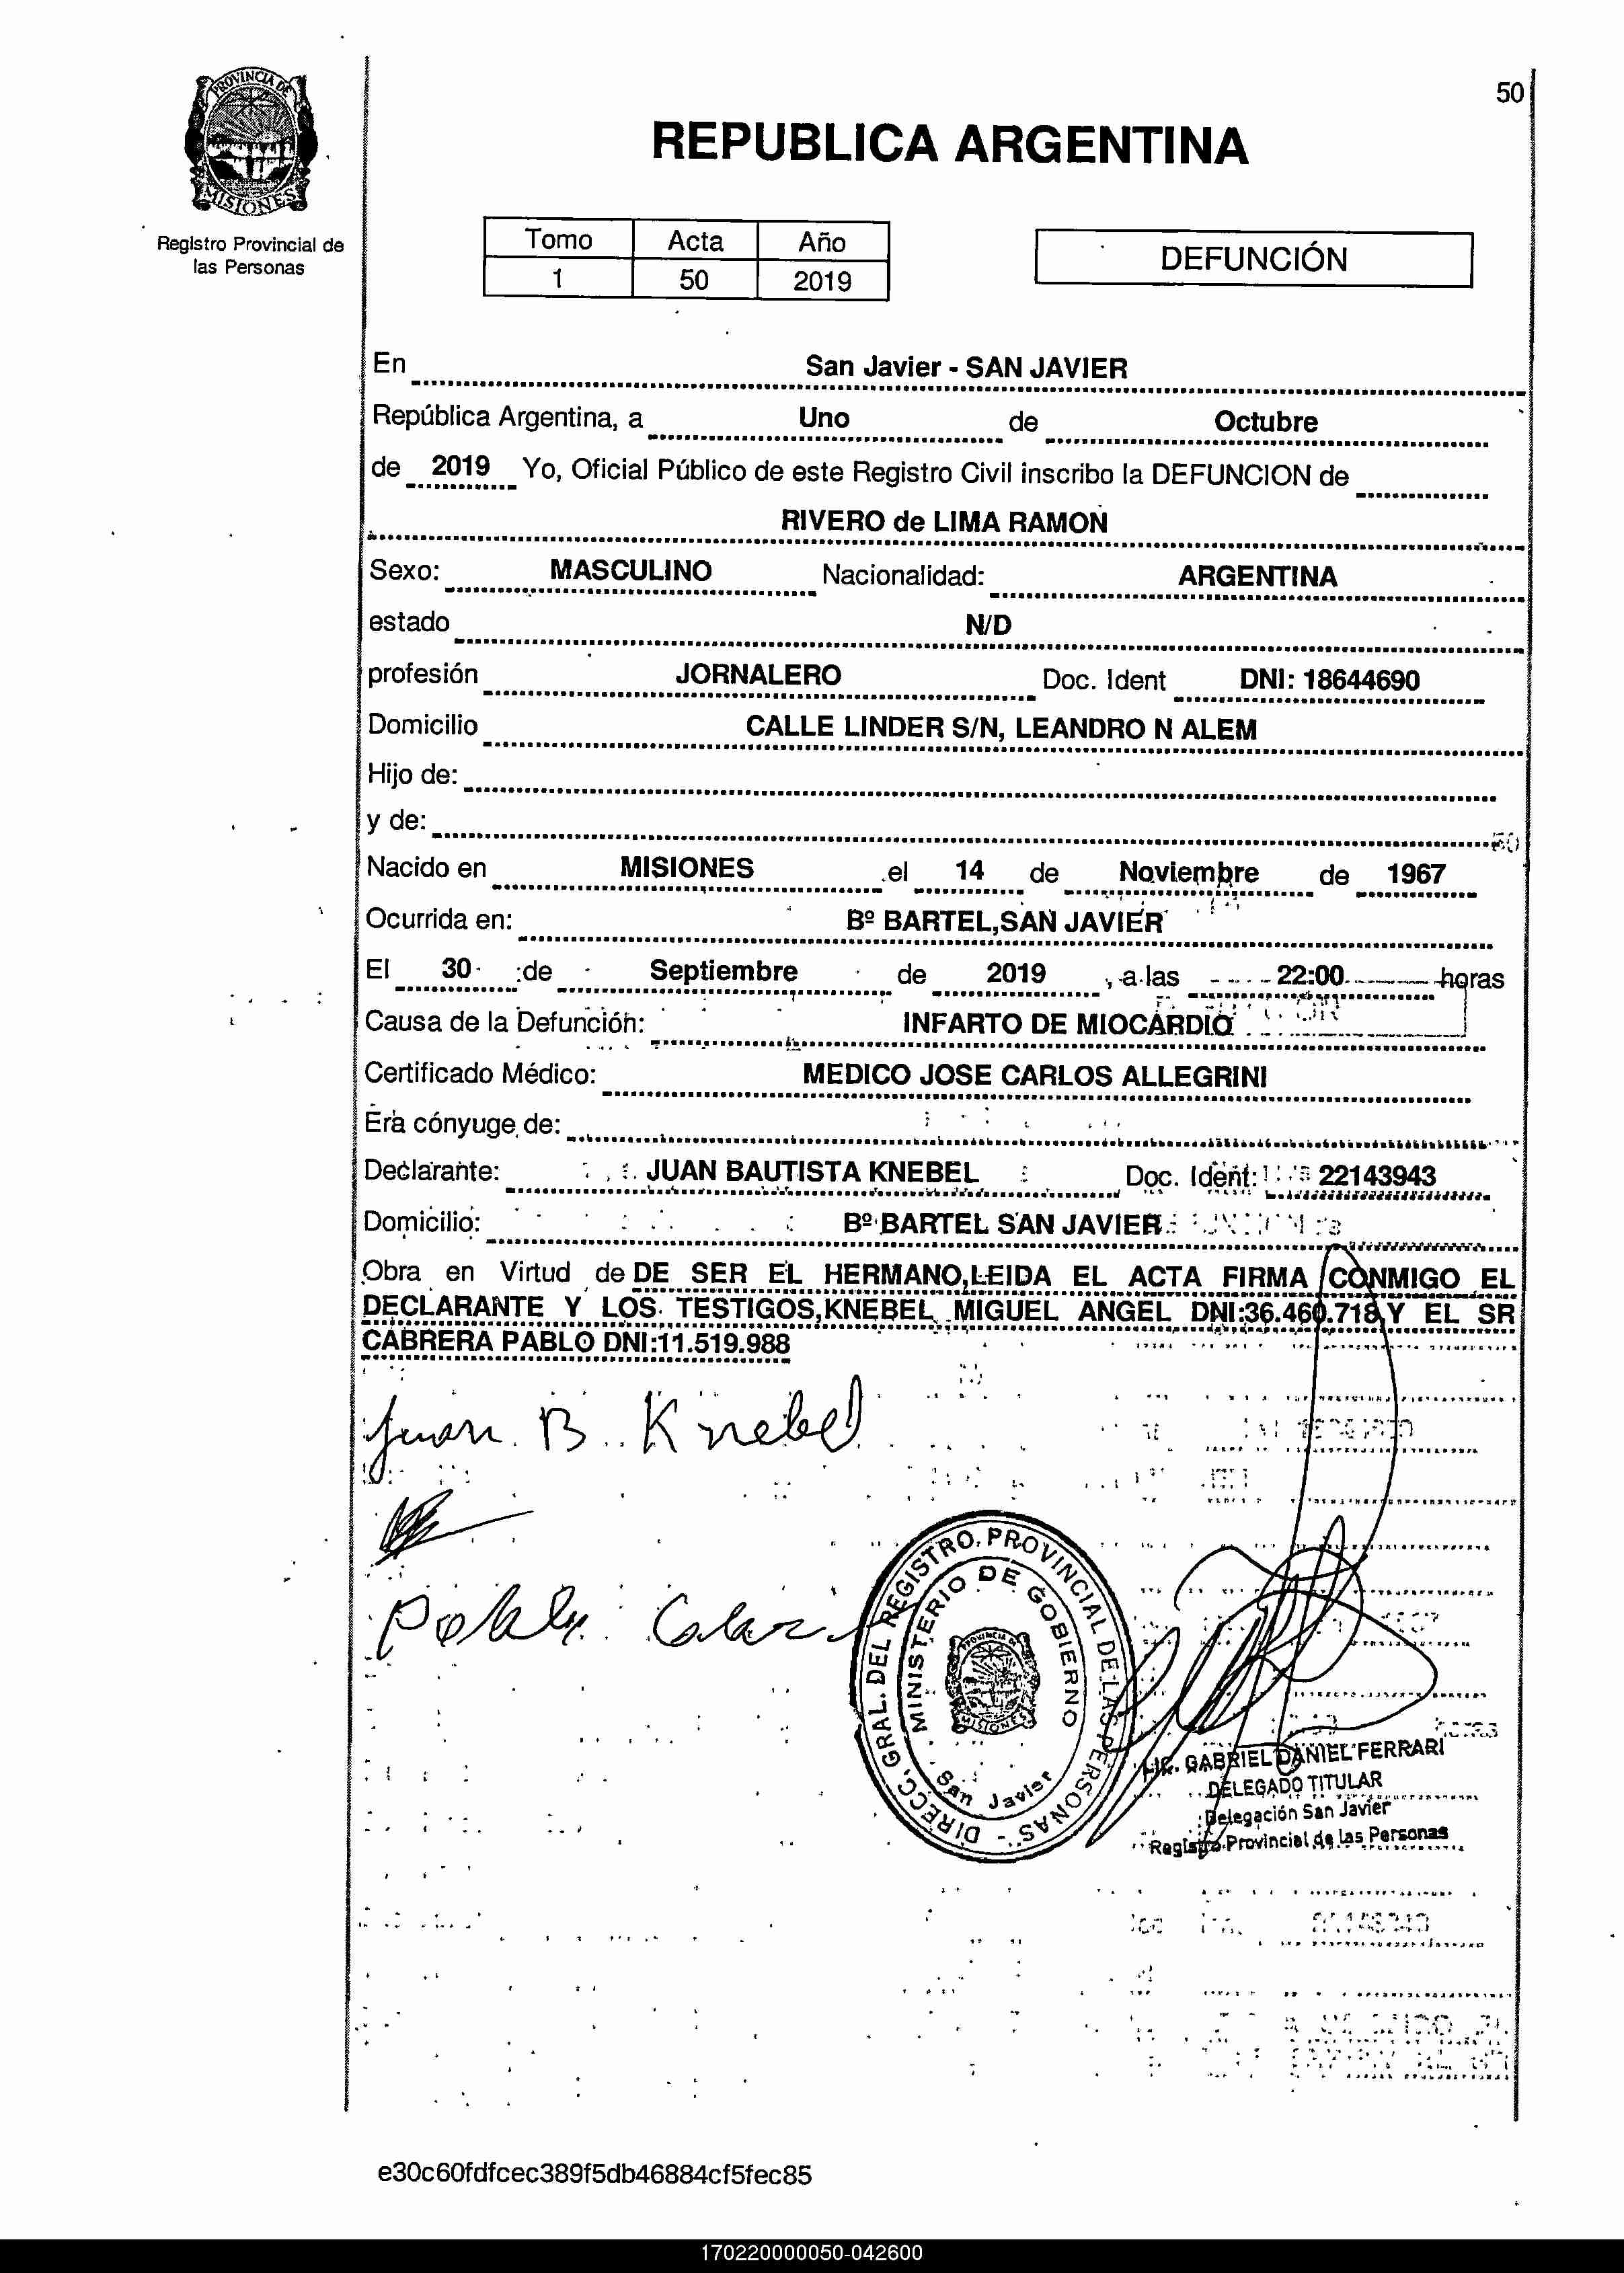 50
PROVINCIA DE
MISIONES
REPUBLICA ARGENTINA
Registro Provincial de
las Personas
Tomo Acta Año
1 50 2019
DEFUNCIÓN
En San Javier - SAN JAVIER
República Argentina, a Uno de Octubre
de 2019 Yo, Oficial Público de este Registro Civil inscribo la DEFUNCION de
RIVERO de LIMA RAMON
Sexo: MASCULINO Nacionalidad: ARGENTINA
estado N/D
profesión JORNALERO Doc. Ident DNI: 18644690
Domicilio CALLE LINDER S/N, LEANDRO N ALEM
Hijo de:
y de:
Nacido en MISIONES el 14 de Noviembre de 1967
Ocurrida en: Bº BARTEL,SAN JAVIER
El 30 de Septiembre de 2019 , a las 22:00 horas
Causa de la Defunción: INFARTO DE MIOCARDIO
Certificado Médico: MEDICO JOSE CARLOS ALLEGRINI
Era cónyuge de:
Declarante: JUAN BAUTISTA KNEBEL Doc. Ident: 22143943
Domicilio: Bº BARTEL SAN JAVIER
Obra en Virtud de DE SER EL HERMANO,LEIDA EL ACTA FIRMA CONMIGO EL
DECLARANTE Y LOS TESTIGOS,KNEBEL MIGUEL ANGEL DNI:36.460.718 Y EL SR
CABRERA PABLO DNI:11.519.988
Juan B. Knebel
DIRECC. GRAL. DEL REGISTRO PROVINCIAL DE LAS PERSONAS -
MINISTERIO DE GOBIERNO
PROVINCIA DE
MISIONES
San Javier
LIC. GABRIEL DANIEL FERRARI
DELEGADO TITULAR
Delegación San Javier
Registro Provincial de las Personas
e30c60fdfcec389f5db46884cf5fec85
170220000050-042600